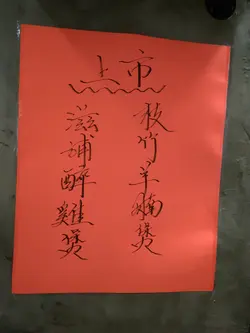 上市
枝竹羊腩煲
滋補醉雞煲